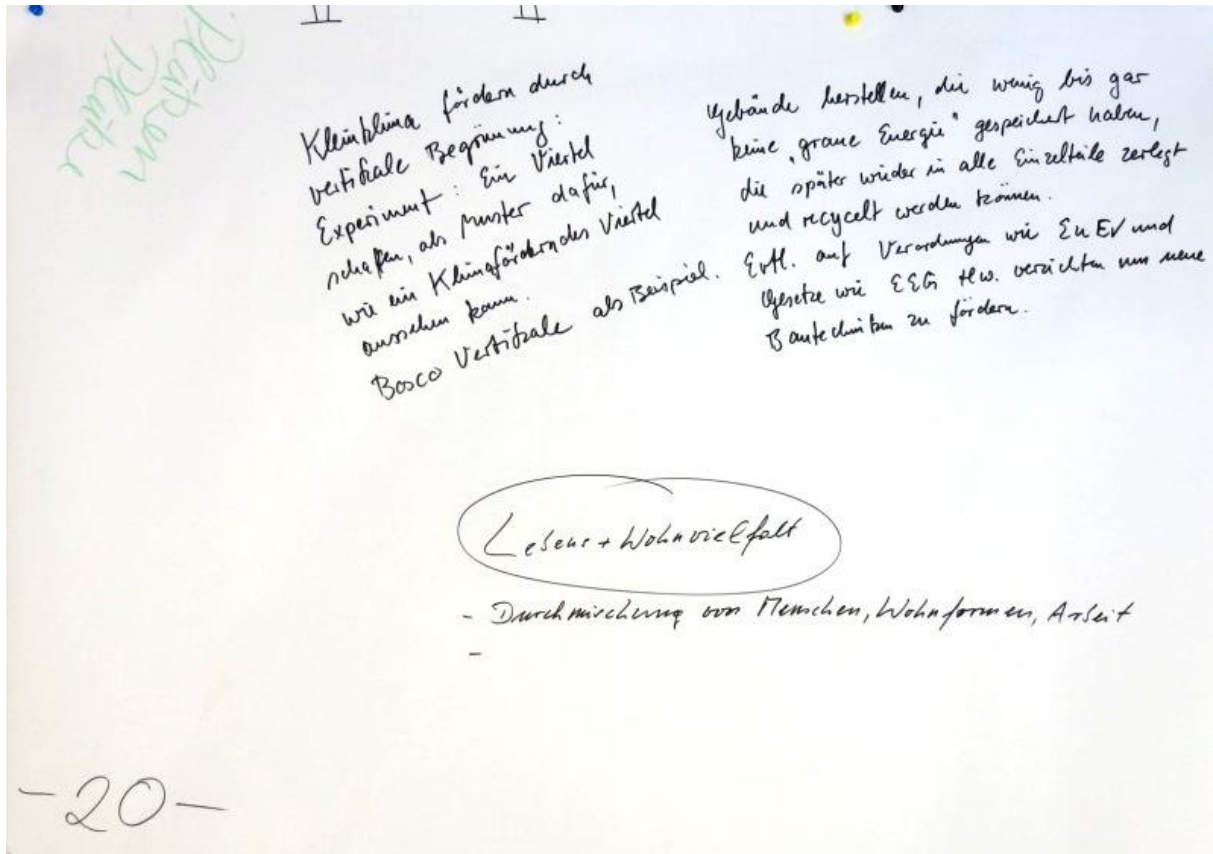 Kleinklima fördern durch
vertikale Begrünung:
Experiment: Ein Viertel
schaffen, als Muster dafür,
wie ein Klimaförderndes Viertel
aussehen kann.
Bosco Vertikale als Beispiel.
Gebäude herstellen, die wenig bis gar
keine "graue Energie" gespeichert haben,
die später wieder in alle Einzelteile zerlegt
und recycelt werden können.
Evtl. auf Verordnungen wie EnEV und
Gesetze wie EEG verzichten um neue
Bautechniken zu fördern.
Lebens + Wohnvielfalt
- Durchmischung von Menschen, Wohnformen, Arbeit
-
-20-